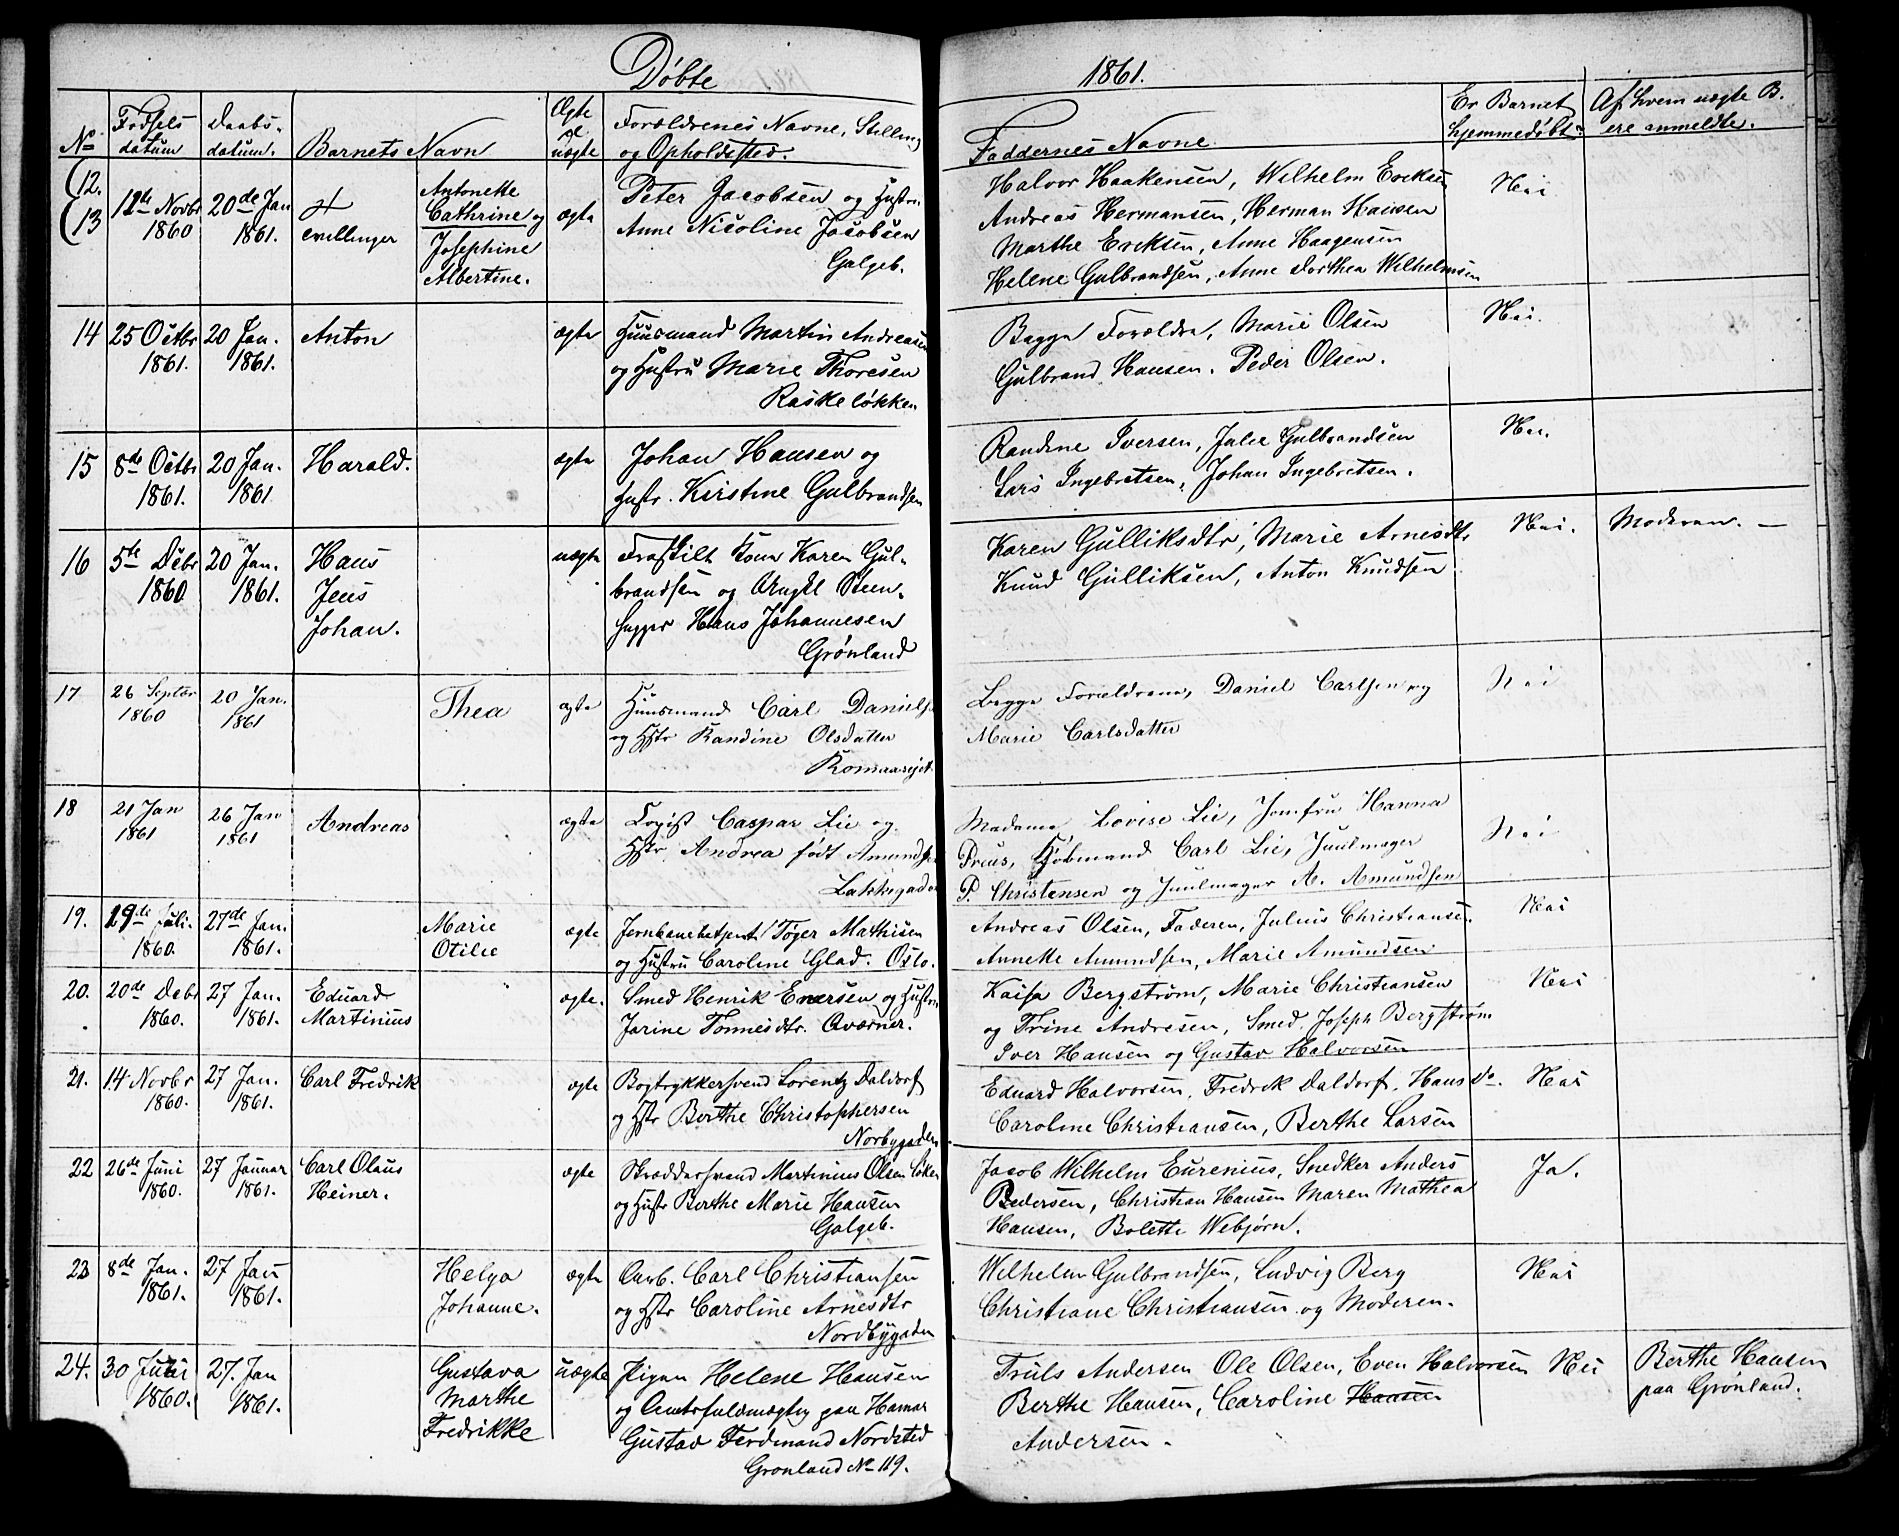 Døbte
1861.
No
Fødsels
datum
Daabs-
datum.
Barnets Navn
Ægte
el.
uægte
Forældrenes Navne, Stilling
og Opholdssted.
Faddernes Navne.
Er Barnet
hjemmedøbt
Af hvem uægte B.
ere anmeldte.
12.
13
12te Novbr
1860
20de Jan
1861.
tvillinger
Antonette
Cathrine og
Josephine
Albertine.
ægte
Peter Jacobsen og Hustru
Anne Nicoline Jacobsen
Galgeb.
Halvor Haakensen, Wilhelm Ericksen
Andreas Hermansen, Herman Hansen
Marthe Ericksen, Anne Haagensen
Helene Gulbrandsen, Anne Dorthea Wilhelmsen
Nei
14
25 Octbr
1861.
20 Jan.
1861.
Anton
ægte
Huusmand Martin Andreasen
og Hustru Marie Thoresen
Raskeløkken
Begge Forældre, Marie Olsen
Gulbrand Hansen. Peder Olsen.
Nei.
15
8de Octbr
1861.
20 Jan.
1861
Harald.
ægte
Johan Hansen og
Hustr. Kirstine Gulbrandsen
Randine Iversen, Julie Gulbrandsen
Lars Ingebretsen, Johan Ingebretsen.
Nei.
16
5te Debr
1860
20 Jan.
1861.
Hans
Jens
Johan.
uægte
Fraskilt Kone Karen Gul-
brandsen og Ungkl Steen-
hugger Hans Johannesen
Grønland
Karen Gulliksdtr, Marie Arnesdtr
Knud Gulliksen, Anton Knudsen
Nei.
Moderen. —
17
26 Septbr
1860
20 Jan.
1861
Thea
ægte
Huusmand Carl Danielsen
og Hstr Randine Olsdatter
Begge Forældrene, Daniel Carlsen og
Marie Carlsdatter
Nei
18
21 Jan
1861
26 Jan
1861
Andreas
ægte
Copist Caspar Lie og
Hstr. Andrea født Amundsen
Lakkegaden
Madame Lovise Lie, Jomfru Hanna
Preus, Kjøbmand Carl Lie, Juulmager
P. Christensen og Juulmager A. Amundsen
Nei
19.
19de Juli.
1860.
27de Jan.
1861.
Marie
Otilie
ægte
Jernbanebetjent Tøger Mathisen
og Hustru Caroline Glad. Oslo.
Andreas Olsen, Faderen, Julius Christiansen
Annette Amundsen, Marie Amundsen
Nei
20.
20de Debr
1860.
27 Jan.
1861.
Eduard
Martinius
ægte.
Smed Henrik Enersen og Hustru
Jorine Tonnesdtr. Qværner.
Kaisa Bergstrøm, Marie Christiansen
og Trine Andresen, Smed Joseph Bergstrøm
Iver Hansen og Gustav Halvorsen
Nei
21.
14 Novbr
1860.
27 Jan.
1861.
Carl Fredrik
ægte
Bogtrykkersvend Lorentz Daldorf
og Hstr Berthe Christophersen
Norbygaden
Eduard Halvorsen, Fredrik Daldorf, Hans Do.
Caroline Christiansen, Berthe Larsen
Nei
22
26de Juni
1860.
27 Januar
1861.
Carl Olaus
Heiner.
ægte
Skræddersvend Martinius Olsen Løken
og Hustr Berthe Marie Hansen
Galgeb.
Jacob Wilhelm Eurenius, Snedker Anders
Pedersen, Christian Hansen Maren Mathea
Hansen, Bolette Webjørn.
Ja.
23
8de Jan.
1861.
27 Jan
1861.
Helga
Johanne.
ægte
Arb. Carl Christiansen
og Hstr Caroline Arnesdtr
Nordbygaden
Wilhelm Gulbrandsen, Ludvig Berg
Christiane Christiansen og Moderen.
Nei
24.
30 Juli
1860.
27. Jan
1861.
Gustava
Marthe
Fredrikke
uægte
Pigen Helene Hansen
og Amtsfuldmægtig paa Hamar
Gustav Ferdinand Nordsted
Grønland No 119.
Truls Andersen Ole Olsen, Even Halvorsen
Berthe Hansen, Caroline Hansen
Andersen.
Nei
Berthe Hansen
paa Grønland.